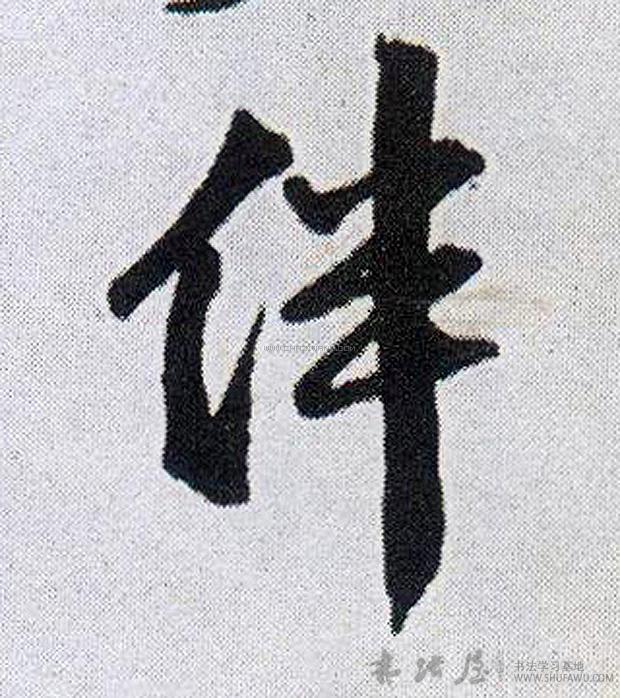 伴
书法屋
书法学习基地
WWW.SHUFAWU.COM